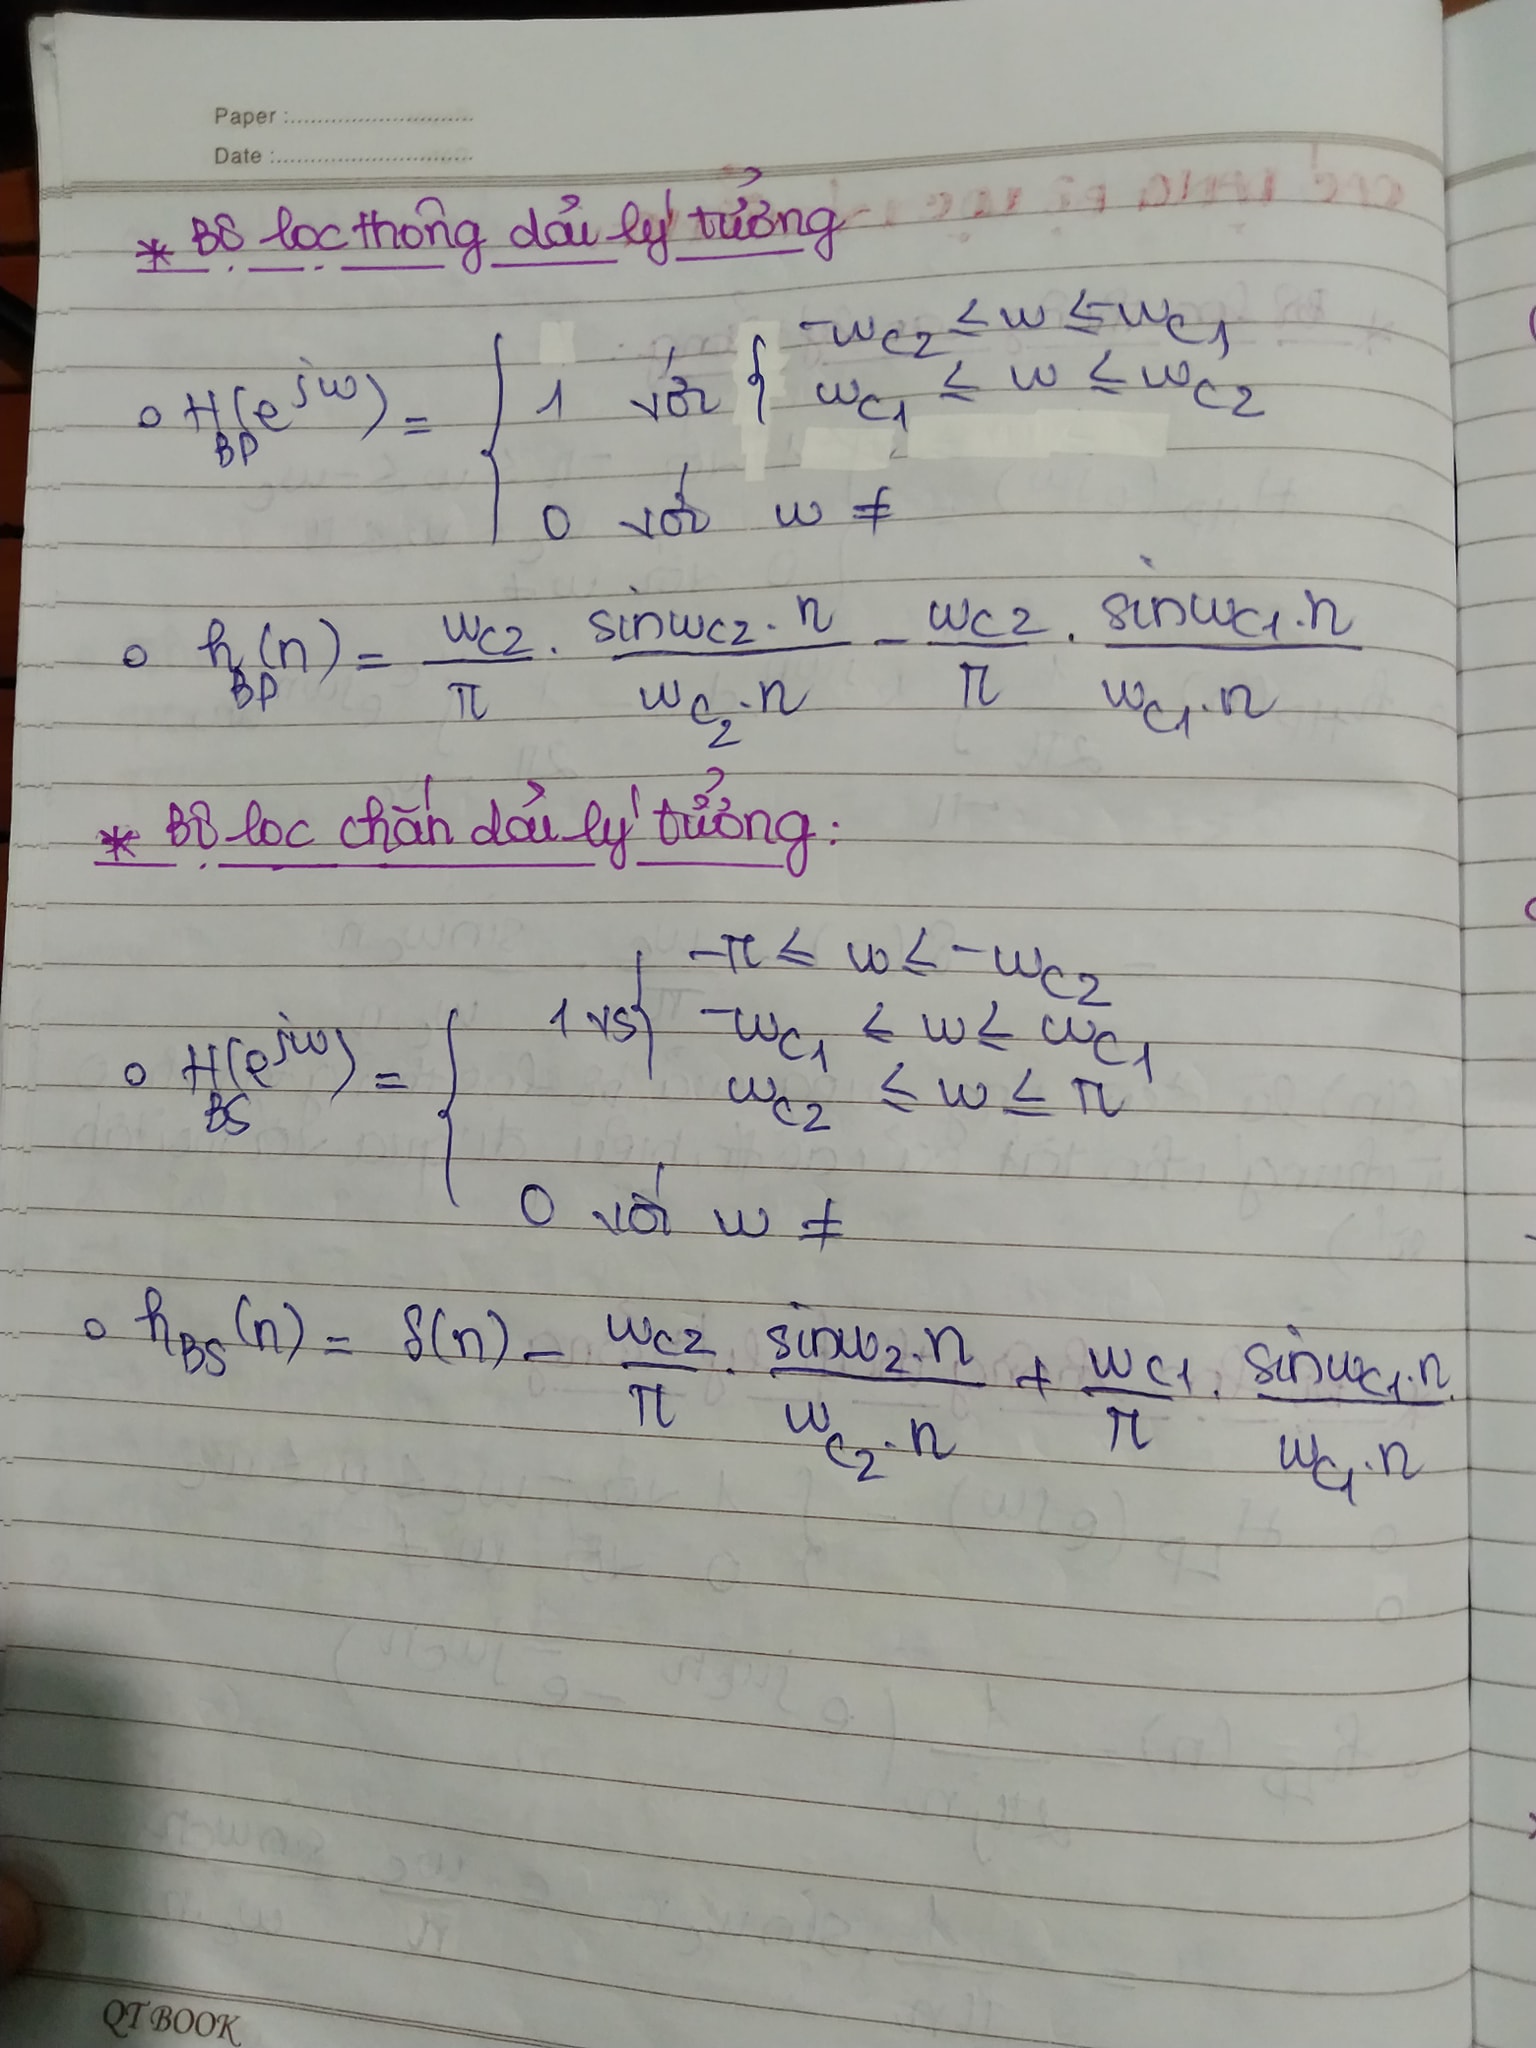 Paper :
Date :
* Bộ lọc thông dải lý tưởng
o H_BP(e^jw) = { 1 với { -w_C2 ≤ w ≤ -w_C1
w_C1 ≤ w ≤ w_C2
0 với w ≠
o h_BP(n) = w_C2/π . sinw_C2.n/w_C2.n - w_C2/π . sinw_C1.n/w_C1.n
* Bộ lọc chắn dải lý tưởng:
-π ≤ w ≤ -w_C2
o H_BS(e^jw) = { 1 vs { -w_C1 ≤ w ≤ w_C1
w_C2 ≤ w ≤ π
0 với w ≠
o h_BS(n) = δ(n) - w_C2/π . sinw_2.n/w_C2.n + w_C1/π . sinw_C1.n/w_C1.n
QT BOOK